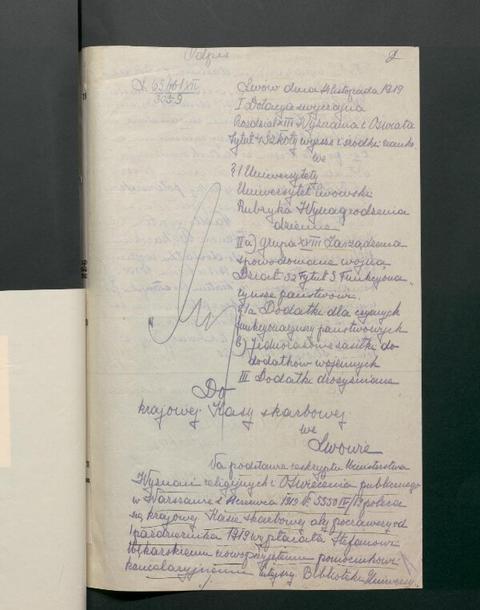 Odpis
Lwów dnia 14 listopada 1919
I Dotacya zwyczajna
Rozdział XIII Wyznania i Oświata
Tytuł 4 Szkoły wyższe i środki nauko
we
§ 1 Uniwersytety
Uniwersytet lwowski
Rubryka Wynagrodzenia
dzienne
II a) grupa XVIII Zarządzenia
spowodowane wojną
Dział 32 Tytuł 3 Funkcyona-
ryusze państwowi
§ 1a Dodatki dla czynnych
funkcyonaryuszy państwowych
b) Jednorazowe zasiłki do
dodatków wojennych
III Dodatki drożyźniane
Do
krajowej Kasy skarbowej
we
Lwowie
Na podstawie reskryptu Ministerstwa
Wyznań religijnych i Oświecenia publicznego
w Warszawie z 1919 N. 5550 IV/19 poleca
się krajowej Kasie skarbowej aby począwszy od
1 października 1919 wypłacała Stefanowi
nowoprzyjętemu pomocnikowi
kancelaryjnemu tutejszej Biblioteki Uniwersy.